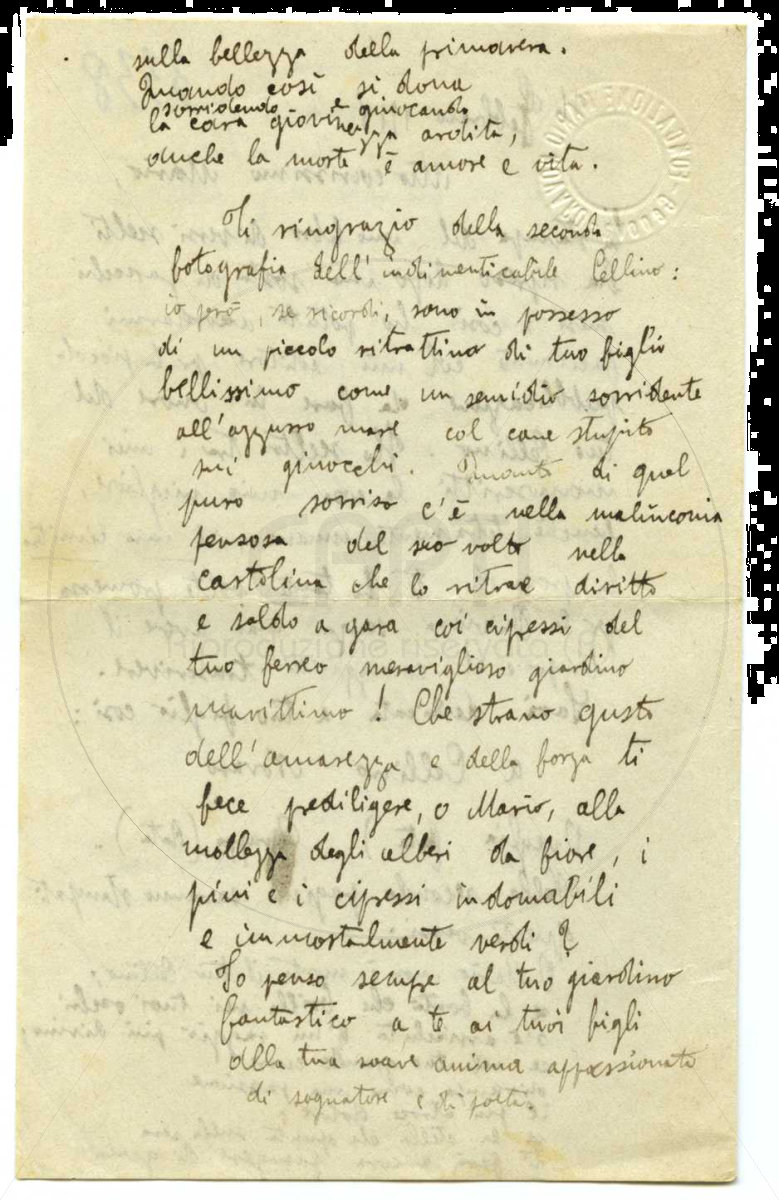 sulla bellezza della primavera.
Quando così si dona
sorridendo e giuocando
la cara giovinezza ardita,
anche la morte è amore e vita.
Ti ringrazio della seconda
fotografia dell'indimenticabile Cellino:
io però, se ricordi, sono in possesso
di un piccolo ritrattino di tuo figlio
bellissimo come un semidio sorridente
all'azzurro mare col cane stupito
sui ginocchi. Quanto di quel
puro sorriso c'è nella malinconia
pensosa del suo volto nella
cartolina che lo ritrae diritto
e saldo a gara coi cipressi del
tuo ferreo meraviglioso giardino
marittimo! Che strano gusto
dell'amarezza e della forza ti
fece prediligere, o Mario, alla
mollezza degli alberi da fiore, i
pini e i cipressi indomabili
e immortalmente verdi?
Io penso sempre al tuo giardino
fantastico a te ai tuoi figli
alla tua soave anima appassionata
di sognatore e di poeta.